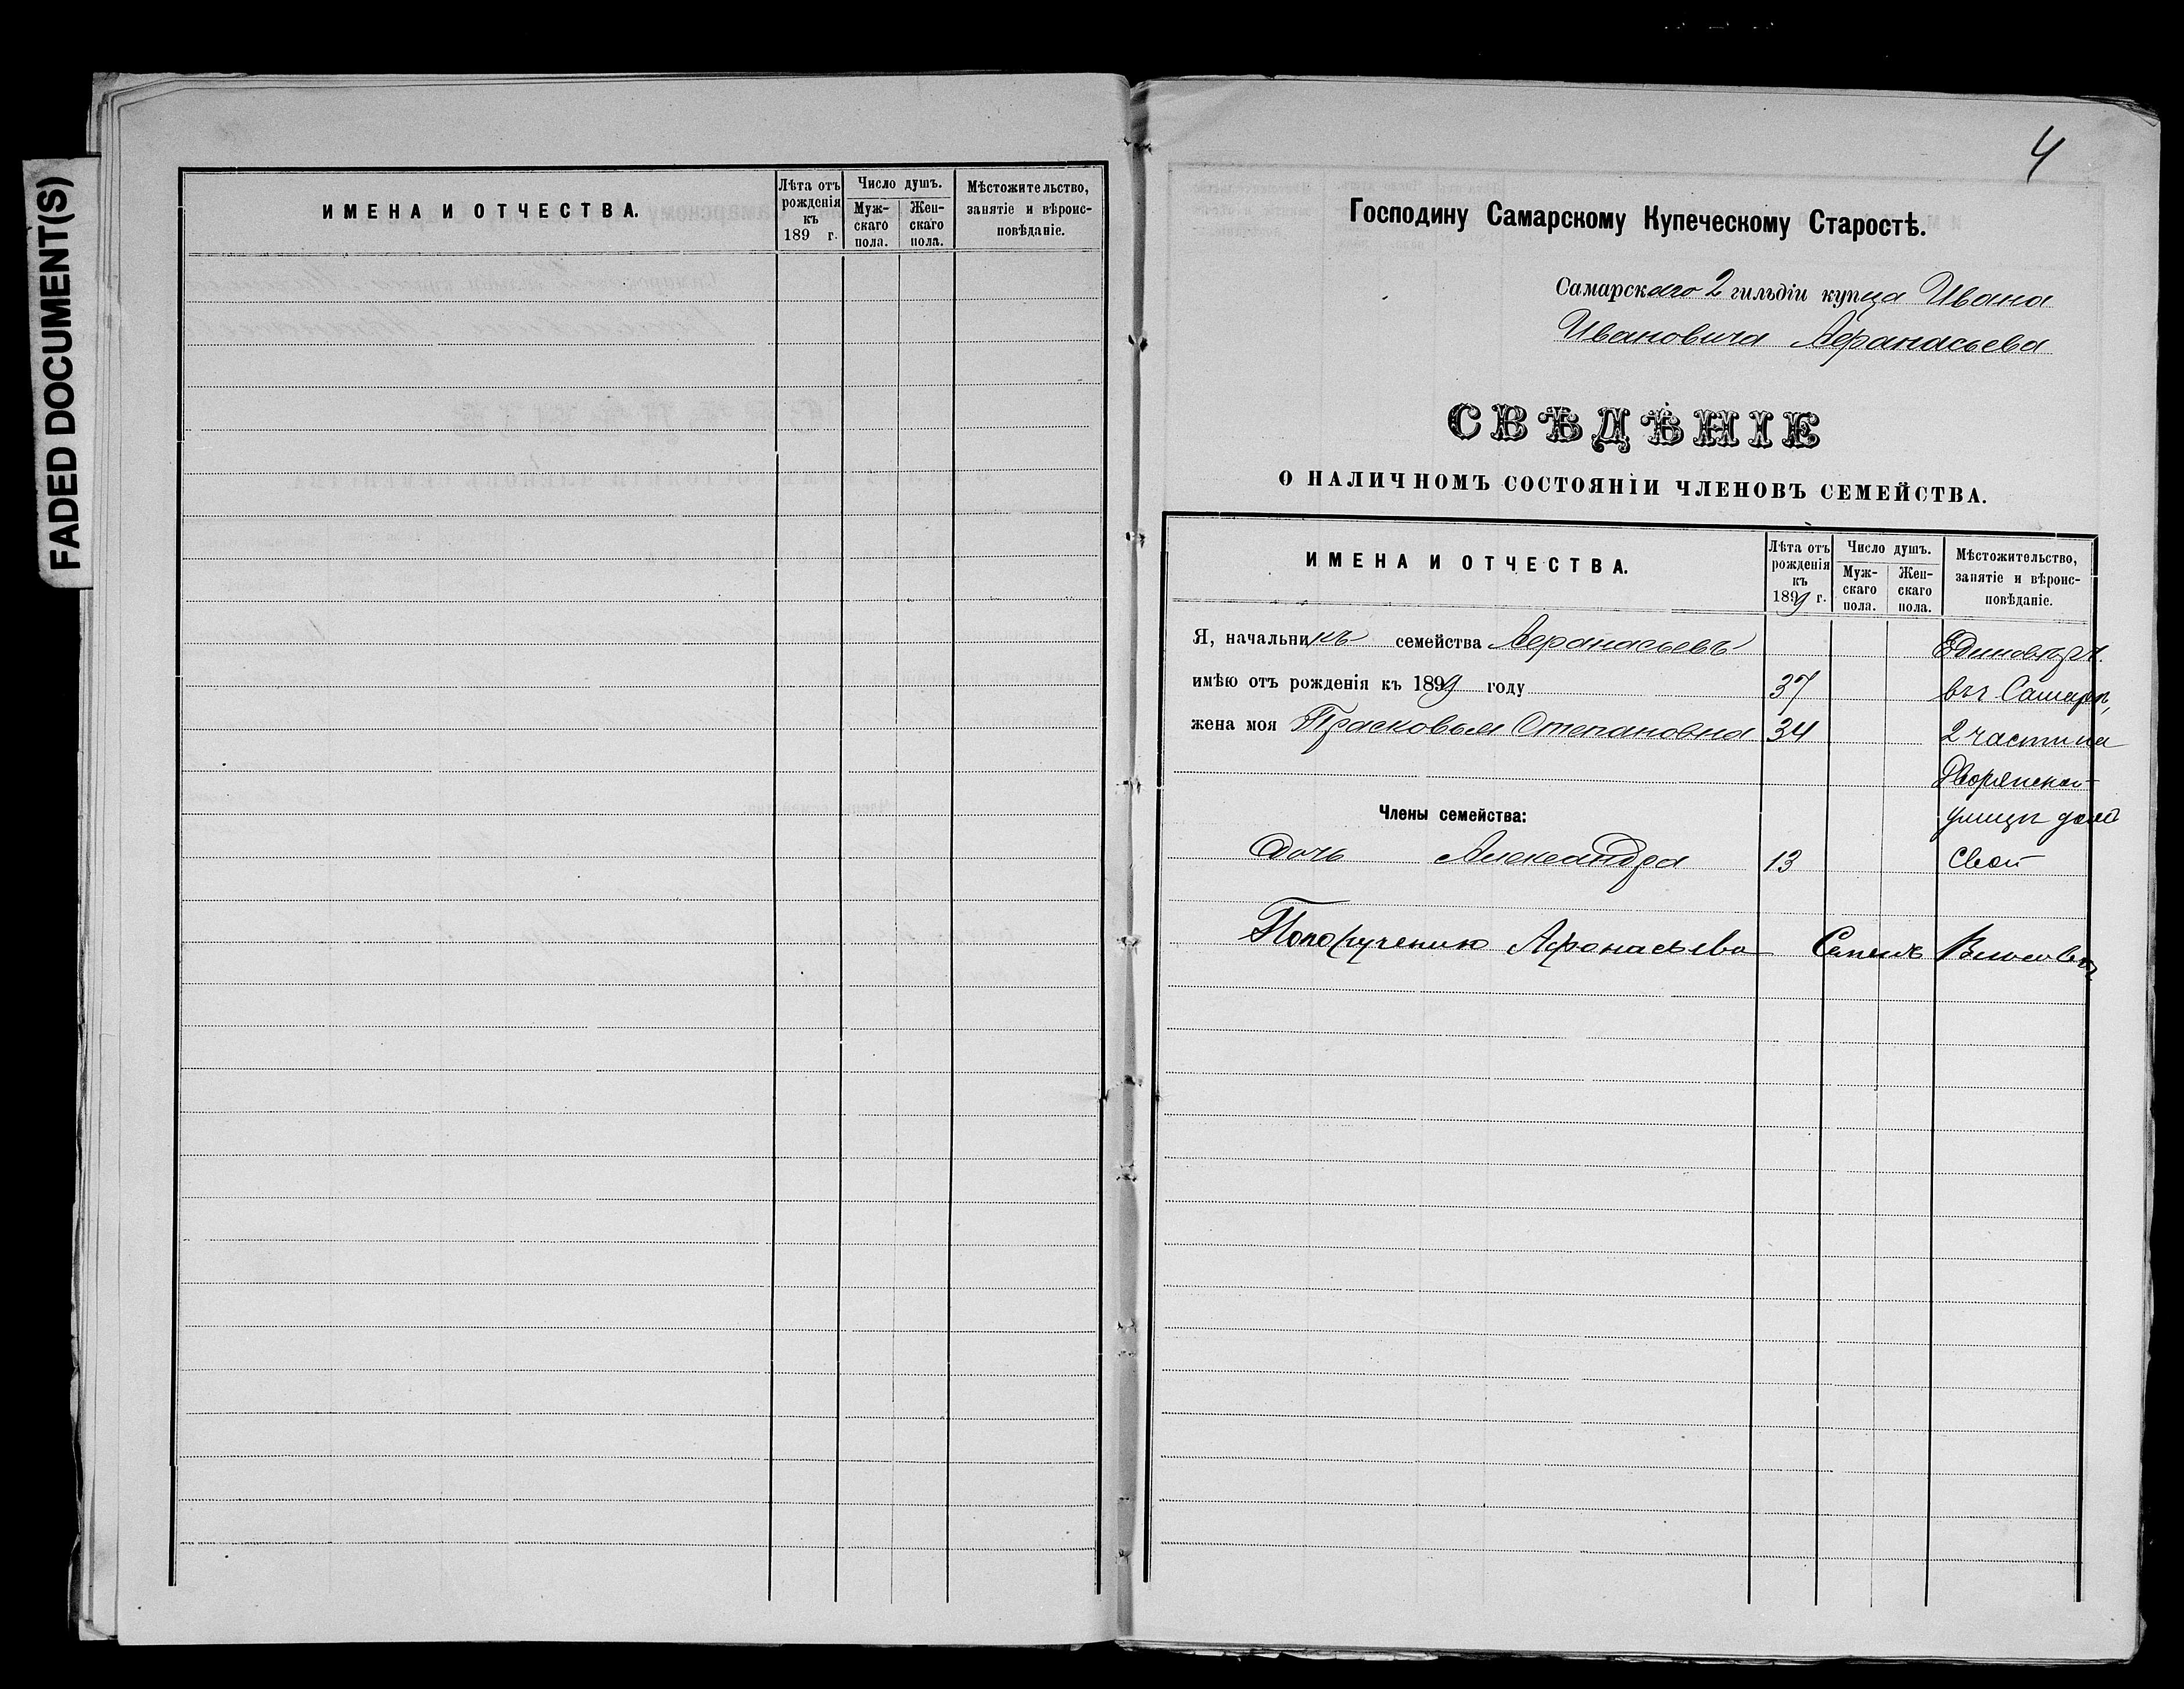 FADED DOCUMENT(S)
ИМЕНА И ОТЧЕСТВА.
Лѣта отъ рожденія къ 189 г.
Число душъ.
Мужскаго пола.
Женскаго пола.
Мѣстожительство, занятіе и вѣроисповѣданіе.
4
Господину Самарскому Купеческому Старостѣ.
Самарскаго 2 гильдіи купца Ивана
Ивановича Афанасьева
СВѢДѢНІЕ
О НАЛИЧНОМЪ СОСТОЯНІИ ЧЛЕНОВЪ СЕМЕЙСТВА.
ИМЕНА И ОТЧЕСТВА.
Лѣта отъ
рожденія
къ
1899 г.
Число душъ.
Муж-
скаго
пола.
Жен-
скаго
пола.
Мѣстожительство,
занятіе и вѣроис-
повѣданіе.
Я, начальникъ семейства Афанасьевъ
имѣю отъ рожденія къ 1899 году 37 въ Самарѣ,
жена моя Прасковья Степановна 34 2 части на
Дворянской
Члены семейства: улицѣ домъ
Дочь Александра 13 свой
По порученію Афанасьева Семенъ